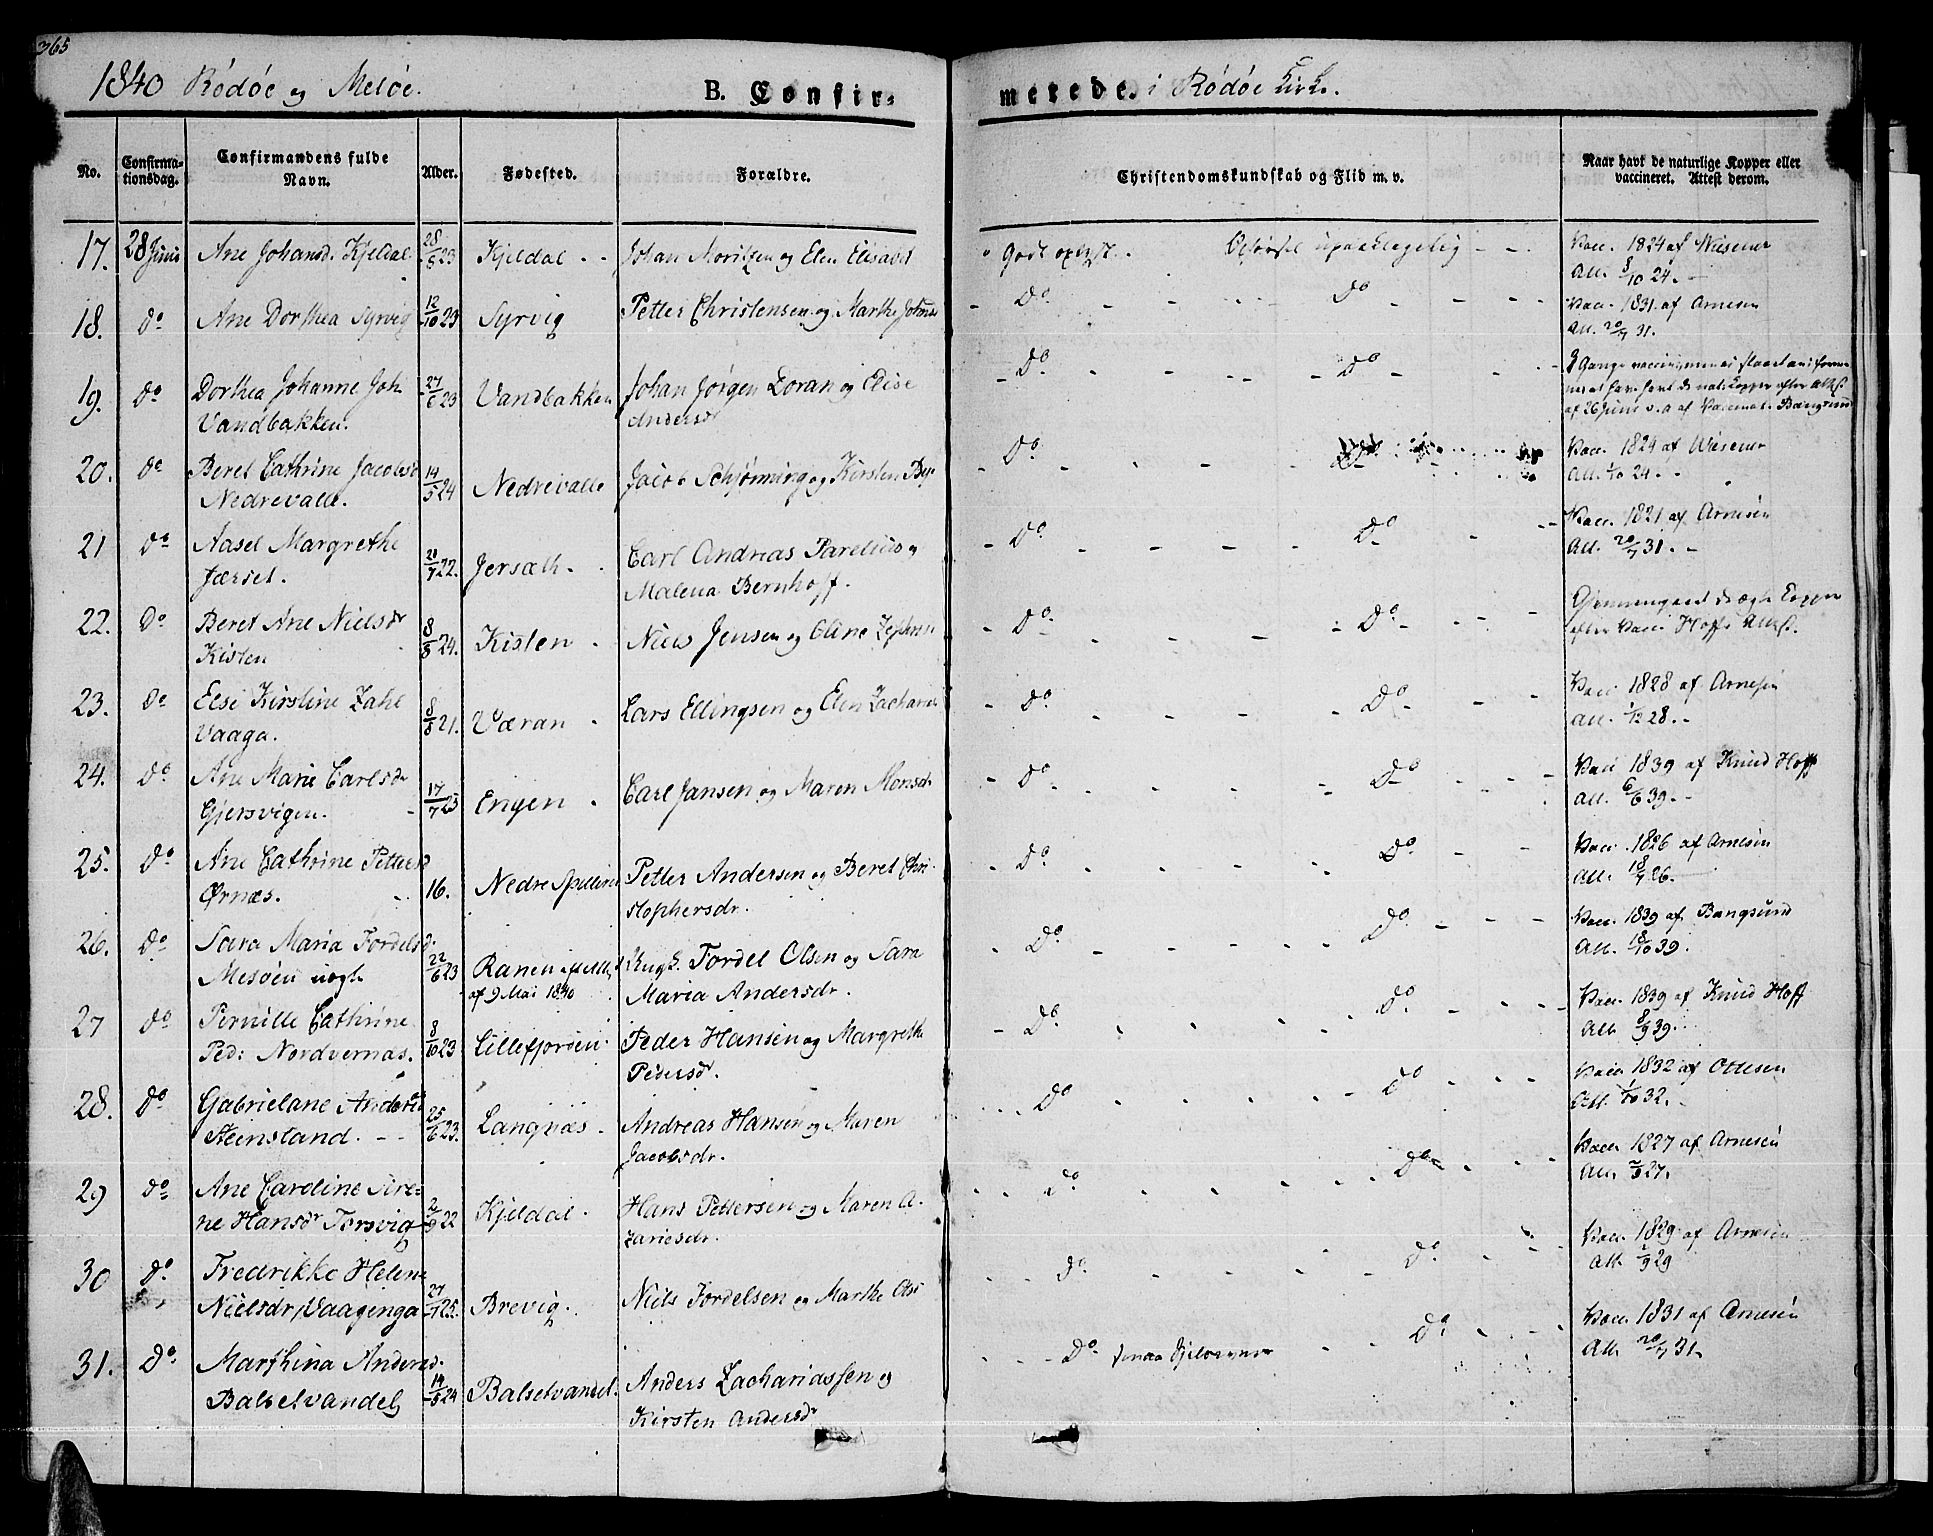 365
1840 Rödöe og Melöe. B. Confir- merede. i Rödöe Kirke.
No. Confirma-tionsdag. Confirmandens fulde Navn. Alder. Fødested. Forældre. Christendomskundskab og Flid m. v. Naar havt de naturlige Kopper eller vaccineret. Attest derom.
17. 28 Juni Ane Johansd. Kjeldal 28/5 23 Kjeldal - - Johan Moritzen og Elen Elisabet Godt oplyst. Opførsel upaaklagelig - - Vacc. 1824 af Wiesener
Att. 8/10 24. -
18. do Ane Dorthea Syrvig 12/10 23 Syrvig Petter Christensen og Marthe Johns - Do - - - Do - - - Vacc. 1831 af Arnesen
Att. 20/7 31.
19. do Dorthea Johanne Joh. 27/6 23 Vandbakken Johan Jörgen Zoran og Elise - Do - - - Do - - - Gange vaccineret
Vandbakken. Andersdr
af 26 Juni af Bangsund
20. do Beret Cathrine Jacobsd 14/5 24 Nedrevalle Jacob Schjønning og Kirsten - Do - - - Do Vacc. 1824 af Wiesener
Nedrevalle. Att. 1/10 24. -
21 do Aasel Margrethe 21/7 22. Jersæth. Carl Andreas Parelius og - Do - - - Do - - Vacc. 1821 af Arnesen
Jærset. Malena Bernhoff. Att. 20/7 31. -
22. Do Beret Ane Nielsdr 8/8 24. Kisten - Niels Jensen og Eline Zephren - Do - - - Do - - Gjennemgaaet de ægte Kopper
Kisten efter Vacc. Hoffs Attest.
23. do Else Kirstine Zahl 8/8 21. Væran - Lars Ellingsen og Elen Zacharia - Do - - - Do - - Vacc. 1828 af Arnesen
Vaaga. Att. 1/12 28. -
24. Do Ane Marie Carlsdr 17/7 23 Engen - Carl Jansen og Maren Monsdr - Do - - - Do - - Vacc. 1839 af Knud Hoff
Gjersvigen. Att. 6/6 39. -
25. Do Ane Cathrine Pettersd 16. Nedre Spilleren Petter Andersen og Beret Chri- - Do - - - Do - - Vacc. 1826 af Arnesen
Ørnæs. stophersdr. Att. 18/7 26.
26. Do Sara Maria Fordelsd. 22/6 23 Ranen Fordel Olsen og Sara - Do - - - Do - - Vacc. 1839 af Bangsund
Mesöen uægte af 9 Mai 1840 Maria Andersdr. Att. 18/10 39.
27 Do Pernille Cathrine 8/10 23 Lillefjorden. Peder Hansen og Margrethe - Do - - - Do - - Vacc. 1839 af Knud Hoff
Ped: Nordvernæs. Pedersdr. Att. 8/9 39.
28. Do Gabrielane Andersd 25/6 23. Langnæs - Andreas Hansen og Maren - Do - - - Do - - Vacc. 1832 af Ottesen
Steinsland. - - Jacobsdr. Att. 1/10 32. -
29 Do Ane Caroline Sire- 2/9 22 Kjeldal - Hans Pettersen og Maren A- - Do - - - Do - - Vacc. 1827 af Arnesen
ne Hansdr Forsvig zariesdr. Att. 7/9 27.
30 Do. Fredrikke Helene 27/1 25. Brevig. Niels Fordelsen og Marthe Ols - Do - - - Do - - Vacc. 1829 af Arnesen
Nielsdr, Vaagenga Att. 2/9 29
31. Do. Marthina Andersd. 14/5 24 Balsetvandel. Anders Zachariassen og - Do - - - Do - - Vacc. 1831 af Arnesen
Balsetvandel Kirsten Andersdr Att. 20/7 31.